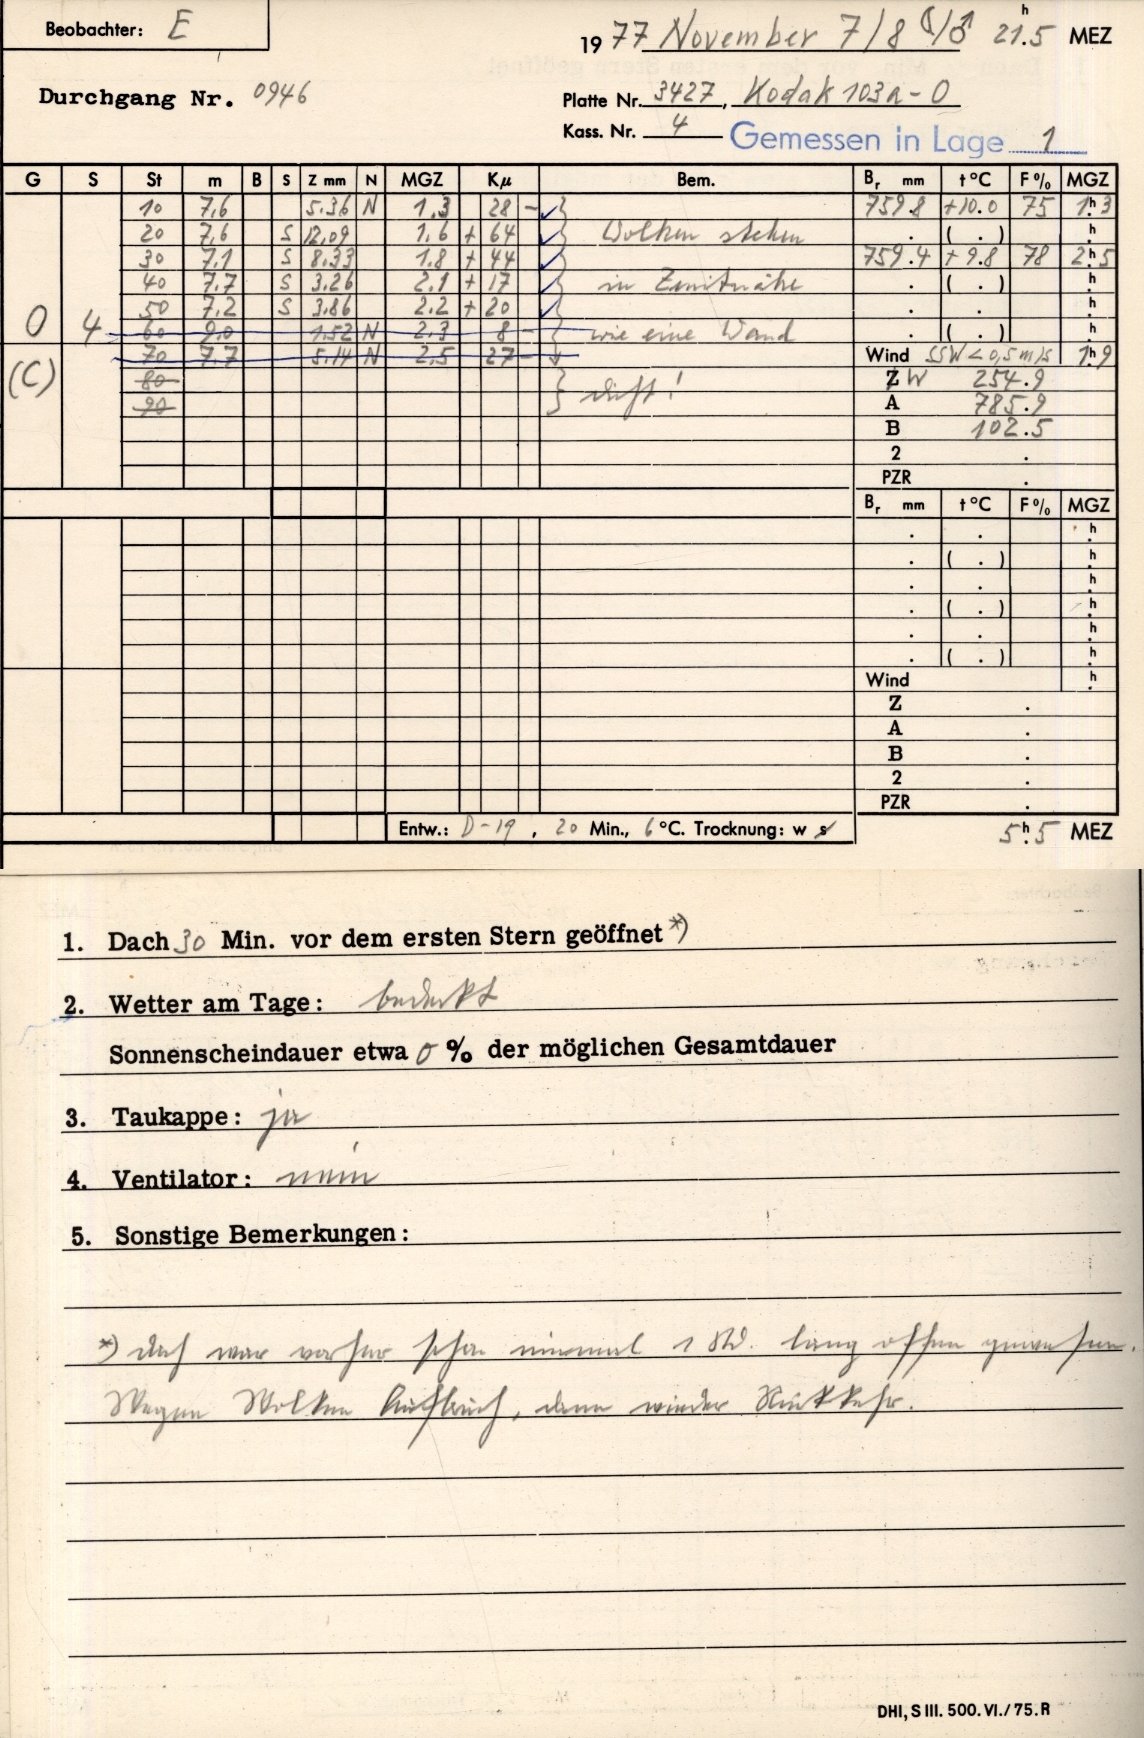 Beobachter: E
1977 November 7/8 ☾/♂ 21ʰ.5 MEZ
Durchgang Nr. 0946
Platte Nr. 3427, Kodak 103a-O
Kass. Nr. 4 Gemessen in Lage 1
G S St m B S Z mm N MGZ Kμ Bem. Br mm t °C F % MGZ
10 7.6 5.36 N 1.3 28 - 759.8 +10.0 75 1ʰ.3
20 7.6 S 12.09 1.6 + 64 Wolken stehen . ( . ) ʰ.
30 7.1 S 8.33 1.8 + 44 759.4 + 9.8 78 2ʰ.5
40 7.7 S 3.26 2.1 + 17 in Zenitnähe . ( . ) ʰ.
50 7.2 S 3.86 2.2 + 20 . . ʰ.
O 4 60 9.0 1.52 N 2.3 8 - wie eine Wand . ( . ) ʰ.
70 7.7 5.14 N 2.5 27 - Wind SSW < 0,5 m/s 1ʰ.9
(C) 80 dicht! Z W 254.9
90 A 785.9
B 102.5
2 .
PZR .
Br mm t °C F % MGZ
. . ʰ.
. ( . ) ʰ.
. . ʰ.
. ( . ) ʰ.
. . ʰ.
. ( . ) ʰ.
Wind ʰ.
Z .
A .
B .
2 .
PZR .
Entw.: D-19, 20 Min., 6 °C. Trocknung: w s 5ʰ.5 MEZ
1. Dach 30 Min. vor dem ersten Stern geöffnet *)
2. Wetter am Tage: bedeckt
Sonnenscheindauer etwa 0 % der möglichen Gesamtdauer
3. Taukappe: ja
4. Ventilator: nein
5. Sonstige Bemerkungen:
*) Dach war vorher schon einmal 1 Std. lang offen gewesen.
Wegen Wolken Aufbruch, dann wieder Rückkehr.
DHI, S III. 500. VI./75. R